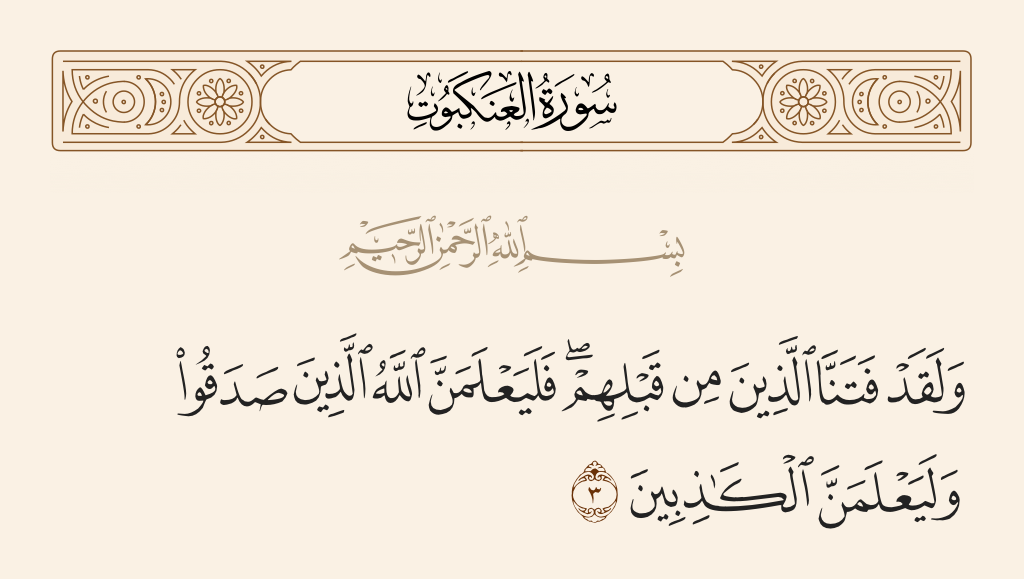 سُورَةُ العَنكَبُوتِ
بِسْمِ ٱللَّهِ ٱلرَّحْمَٰنِ ٱلرَّحِيمِ
وَلَقَدْ فَتَنَّا ٱلَّذِينَ مِن قَبْلِهِمْۖ فَلَيَعْلَمَنَّ ٱللَّهُ ٱلَّذِينَ صَدَقُوا۟
وَلَيَعْلَمَنَّ ٱلْكَـٰذِبِينَ ٣